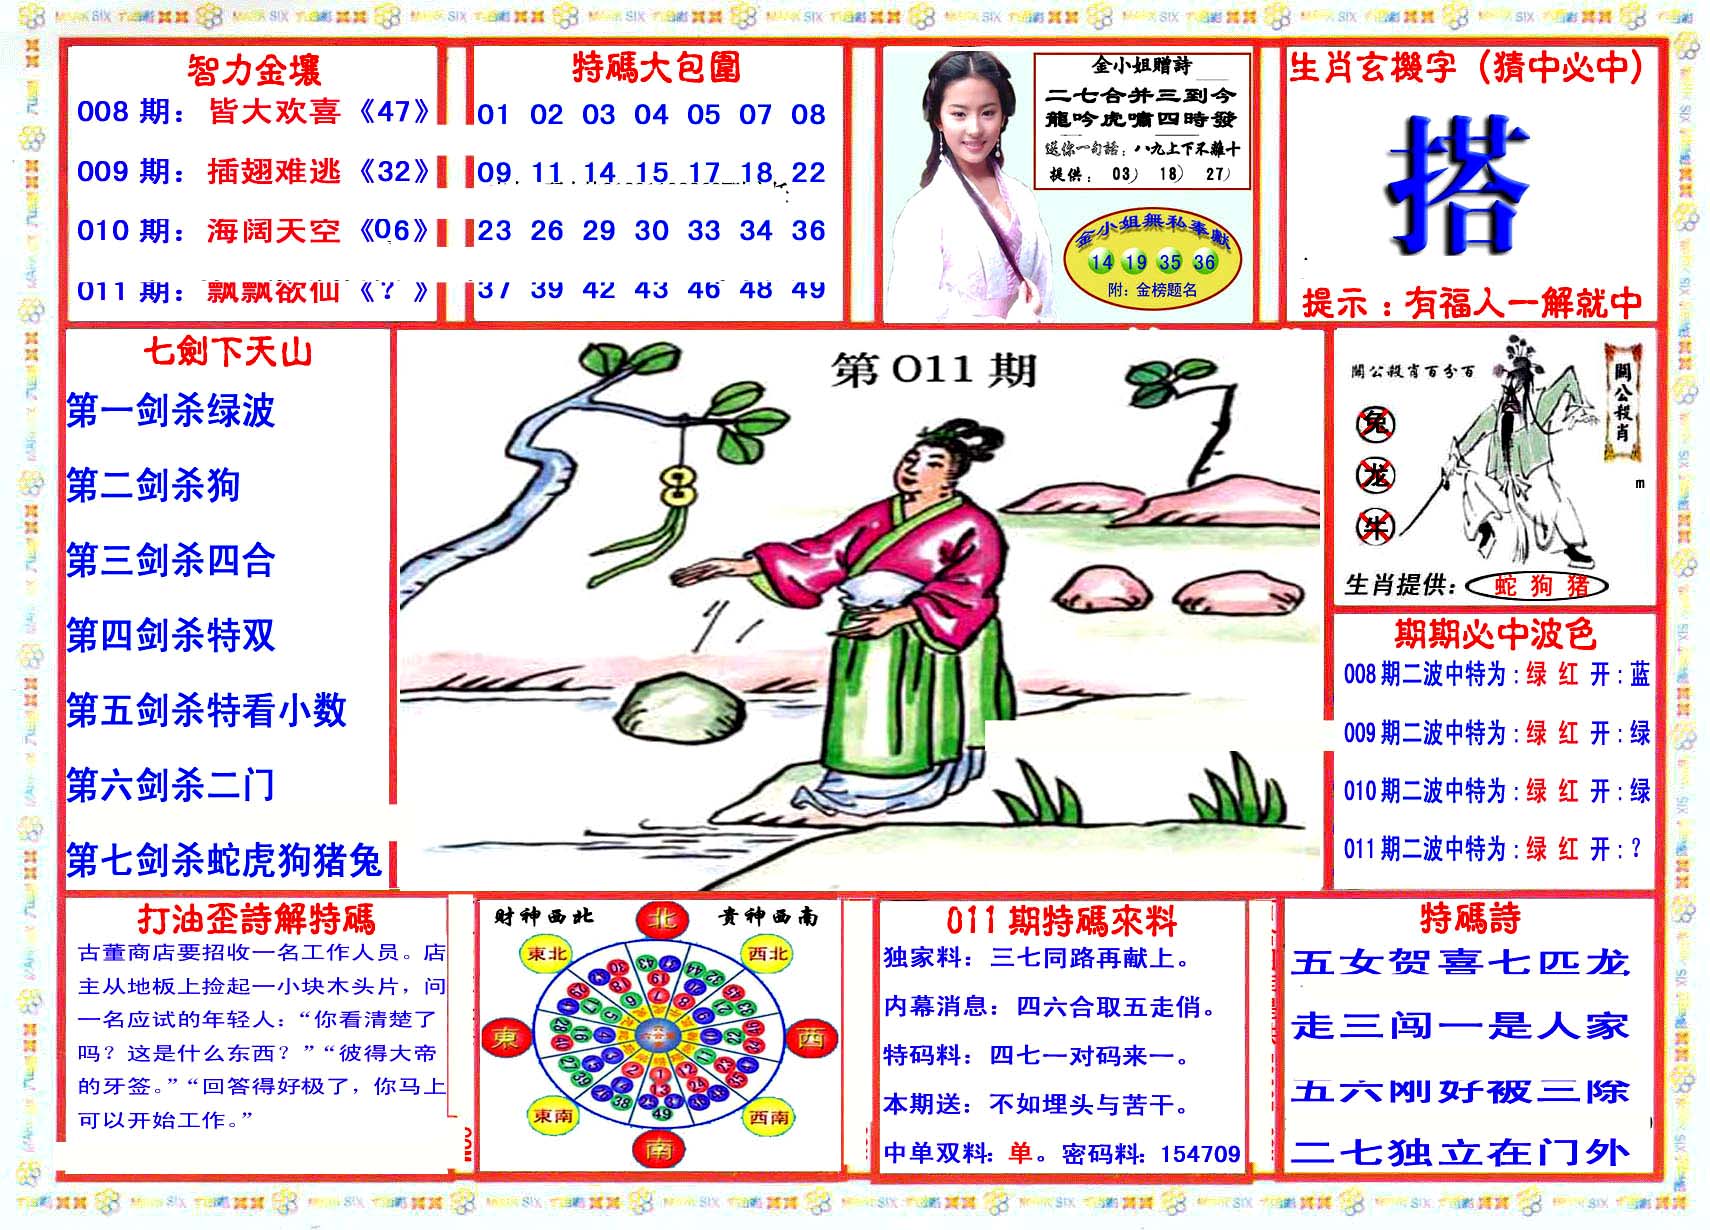 智力金壤
008 期： 皆大欢喜《47》
009 期： 插翅难逃《32》
010 期： 海阔天空《06》
011 期： 飘飘欲仙《? 》
特碼大包圍
01 02 03 04 05 07 08
09 11 14 15 17 18 22
23 26 29 30 33 34 36
37 39 42 43 46 48 49
金小姐赠詩
二七合并三到今
龍吟虎嘯四時發
送你一句話：八九上下不離十
提供： 03） 18） 27）
金小姐無私奉獻
14 19 35 36
附：金榜题名
生肖玄機字（猜中必中）
搭
提示：有福人一解就中
七劍下天山
第一剑杀绿波
第二剑杀狗
第三剑杀四合
第四剑杀特双
第五剑杀特看小数
第六剑杀二门
第七剑杀蛇虎狗猪兔
第011期
關公殺肖百分百
關公殺肖
兔
龙
牛
m
生肖提供： 蛇 狗 猪
期期必中波色
008期二波中特为：绿 红 开：蓝
009期二波中特为：绿 红 开：绿
010期二波中特为：绿 红 开：绿
011期二波中特为：绿 红 开：？
打油歪詩解特碼
古董商店要招收一名工作人员。店
主从地板上捡起一小块木头片，问
一名应试的年轻人：“你看清楚了
吗？这是什么东西？”“彼得大帝
的牙签。”“回答得好极了，你马上
可以开始工作。”
財神西北 貴神西南
北
東北 西北
東 西
東南 西南
南
011期特碼來料
独家料：三七同路再献上。
内幕消息：四六合取五走俏。
特码料：四七一对码来一。
本期送：不如埋头与苦干。
中单双料：单。密码料：154709
特碼詩
五女贺喜七匹龙
走三闯一是人家
五六刚好被三除
二七独立在门外